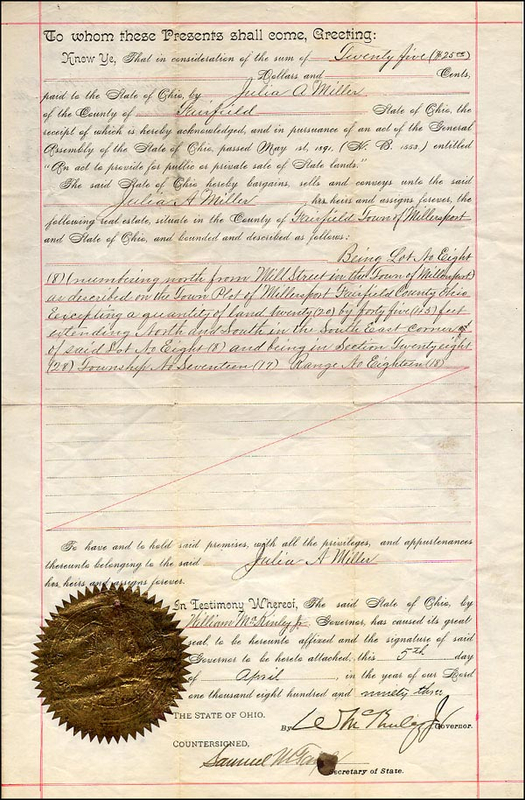 To whom these Presents shall come, Greeting:
Know Ye, That in consideration of the sum of Twenty five ($25 00)
Dollars and Cents,
paid to the State of Ohio, by Julia A Miller
of the County of Fairfield State of Ohio, the
receipt of which is hereby acknowledged, and in pursuance of an act of the General
Assembly of the State of Ohio, passed May 1st, 1891, (H. B. 1552.) entitled
"An act to provide for public or private sale of State lands."
The said State of Ohio hereby bargains, sells and conveys unto the said
Julia A Miller has, heirs and assigns forever, the
following real estate, situate in the County of Fairfield Town of Millersport
and State of Ohio, and bounded and described as follows:
Being Lot No Eight
(8) (numbering north from Mill Street in the Town of Millersport)
as described on the Town Plot of Millersport Fairfield County Ohio
Excepting a quantity of land twenty (20) by forty five (45) feet
extending North and South in the South East corner of
of said Lot No Eight (8) and being in Section Twenty eight
(28) Township No Seventeen (17) Range No Eighteen (18)
To have and to hold said premises, with all the privileges, and appurtenances
thereunto belonging to the said Julia A Miller
has, heirs and assigns forever.
In Testimony Whereof, The said State of Ohio, by
William McKinley Jr Governor, has caused its great
seal, to be hereunto affixed and the signature of said
Governor to be hereto attached, this 5th day
of April, in the year of our Lord
one thousand eight hundred and ninety three
THE STATE OF OHIO.
By Wm McKinley Jr Governor.
COUNTERSIGNED,
Samuel M Taylor
Secretary of State.